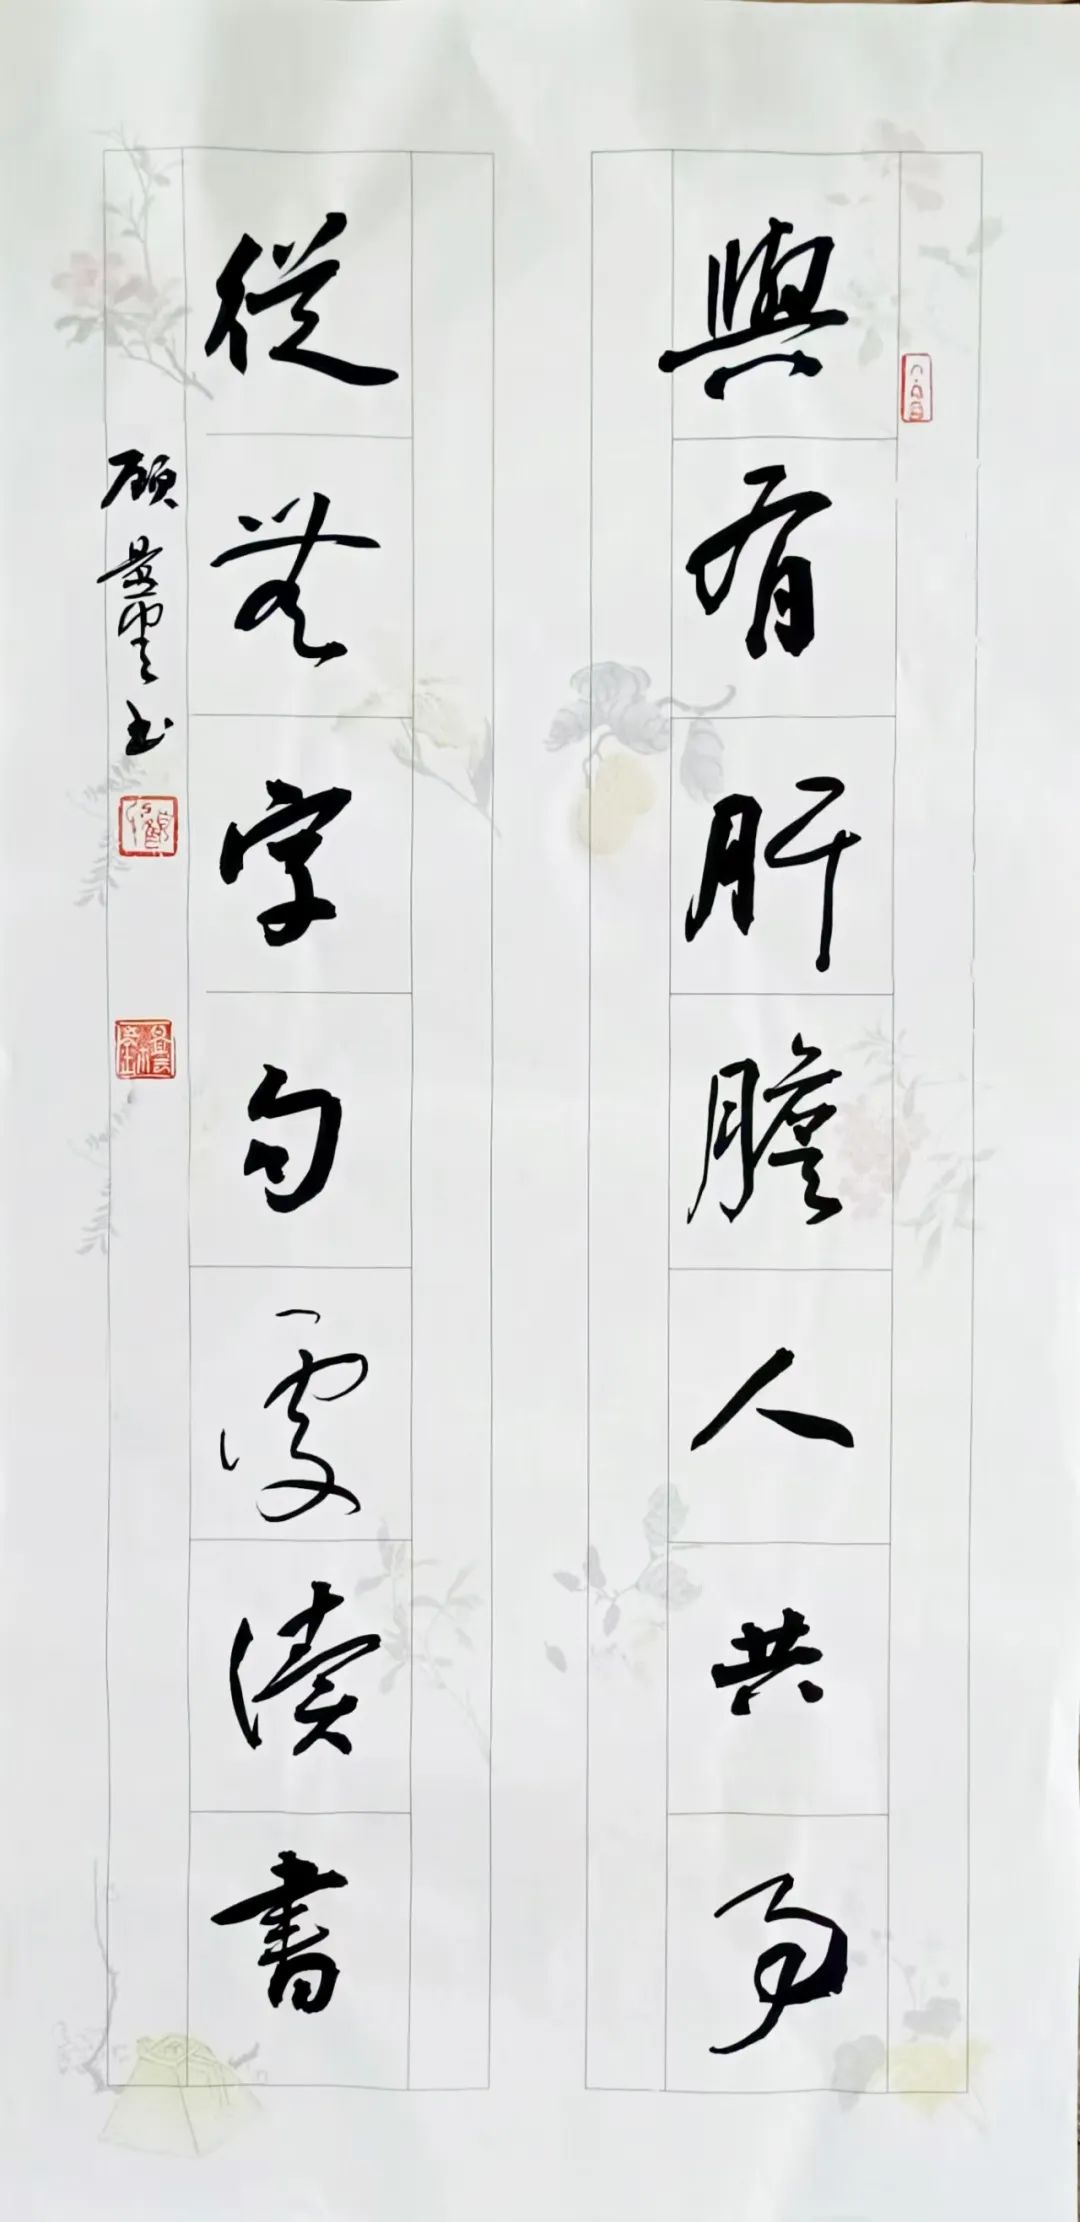 與有肝膽人共事
從無字句處讀書
顧書